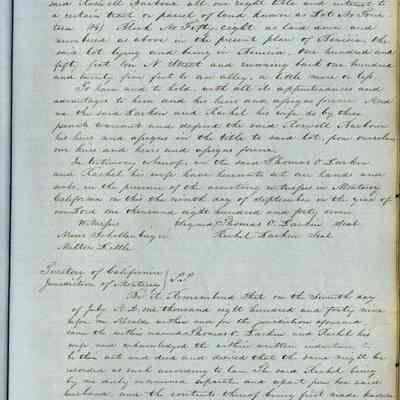 said Roswell Harbour all our right title and interest to
a certain tract or parcel of land known as Lot No Four-
teen (14) Block No Fifty eight as laid down and
numbered as above in the present plan of Benicia the
said lot lying and being in Benicia, One hundred and
fifty feet on N Street and running back one hundred
and twenty five feet to an alley, a little more or less
To have and to hold, with all its appurtenances and
advantages to him and his heirs and assigns forever And
we the said Larkin and Rachel his wife do by these
presents warrant and defend the said Roswell Harbour
his heirs and assigns in the title to said lot, from ourselves
our heirs and heirs and assigns forever.
In testimony whereof, we the said Thomas O. Larkin
and Rachel his wife have hereunto set our hands and
seals, in the presence of the annotating witnesses in Monterey
California on this the month day of September in the year of
our Lord one thousand eight hundred and forty seven
Witnesses Signed Thomas O. Larkin Seal
Moses Schallenberger Rachel Larkin Seal
Milton Little
Territory of California
Jurisdiction of Monterey SS
Be it Remembered that on the Seventh day
of July A.D. one thousand eight hundred and forty nine
before me Alcalde within and for the jurisdiction aforesaid
came the within named Thomas O Larkin and Rachel his
wife and acknowledged the within written indenture to
be their act and deed and desired that the same might be
recorded as such according to law The said Rachel being
by me duly examined separate and apart from her said
husband and the contents thereof being first made known